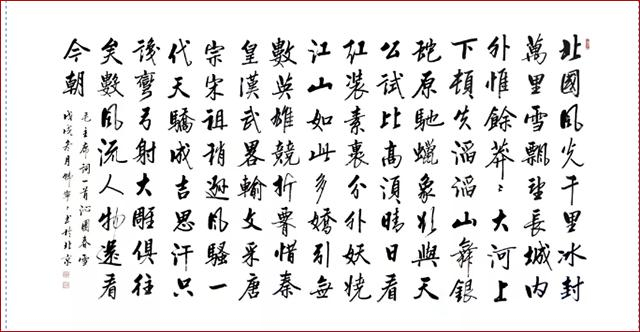 北國風光千里冰封
萬里雪飄望長城内
外惟餘莽〻大河上
下頓失滔滔山舞銀
蛇原馳蠟象欲與天
公試比高須晴日看
紅裝素裹分外妖嬈
江山如此多嬌引無
數英雄競折腰惜秦
皇漢武畧輸文采唐
宗宋祖稍遜風騷一
代天驕成吉思汗只
識彎弓射大雕俱往
矣數風流人物還看
今朝
毛主席詞一首沁園春雪
戊戌冬月書於北京